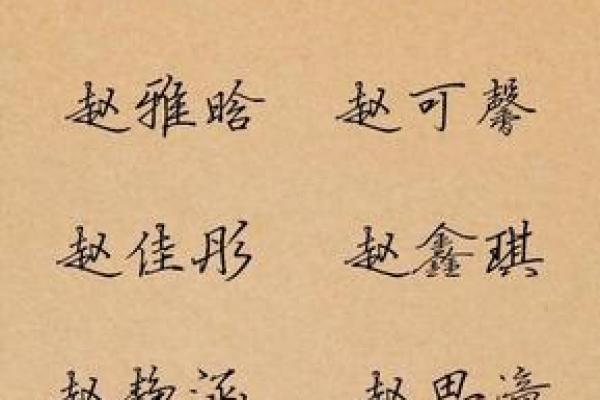 赵雅晗 赵可馨
赵佳彤 赵鑫琪
赵静涵 赵思